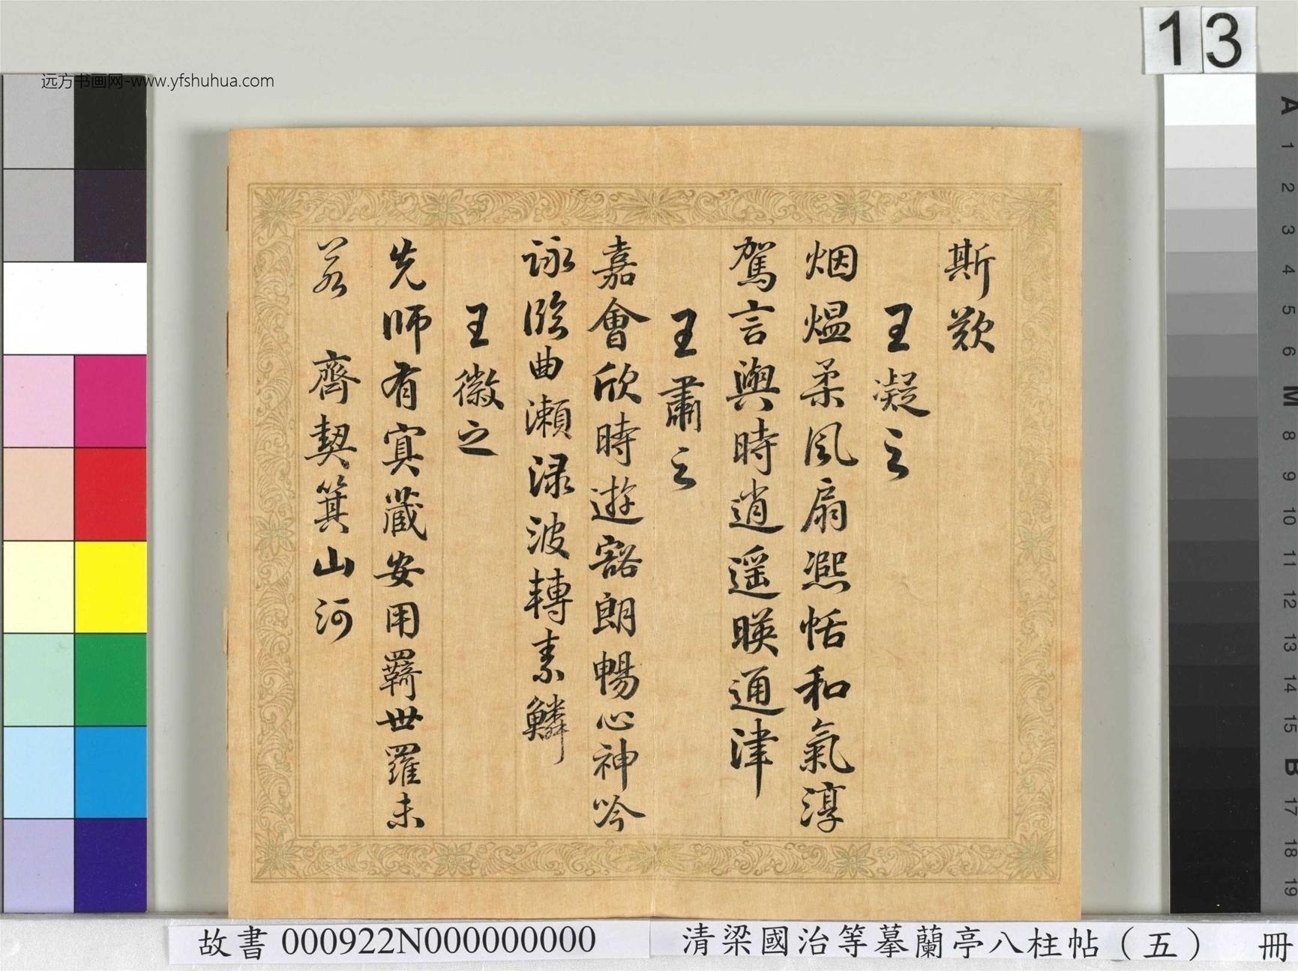 远方书画网-www.yfshuhua.com
13
斯欵
王凝之
烟熅柔风扇熈恬和氣淳
駕言興時遊逍遥暎通津
王肅之
嘉會欣時遊豁朗暢心神吟
詠臨曲瀬渌波轉素鱗
王徽之
先師有寘蔵安用羇世羅未
若 齊契箕山河
A 1 2 3 4 5 6 M 8 9 10 11 12 13 14 15 B 17 18 19
故書 000922N000000000 清梁國治等摹蘭亭八柱帖（五） 冊